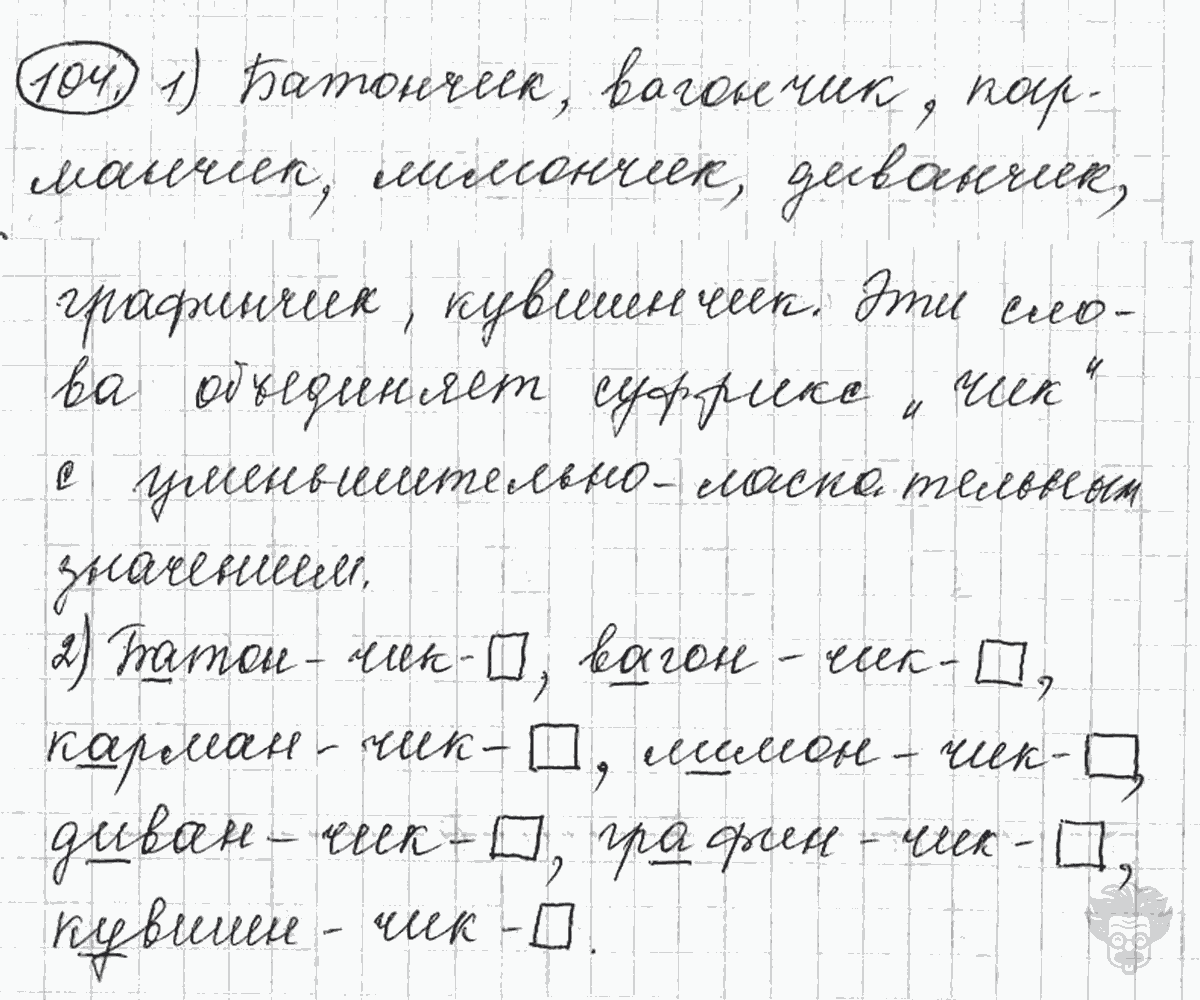 104. 1) Батончик, вагончик, кар-
манчик, лимончик, диванчик,
графинчик, кувшинчик. Эти сло-
ва объединяет суффикс „чик“
с уменьшительно-ласкательным
значением.
2) Батон - чик - □, вагон - чик - □,
карман - чик - □, лимон - чик - □,
диван - чик - □, графин - чик - □,
кувшин - чик - □.